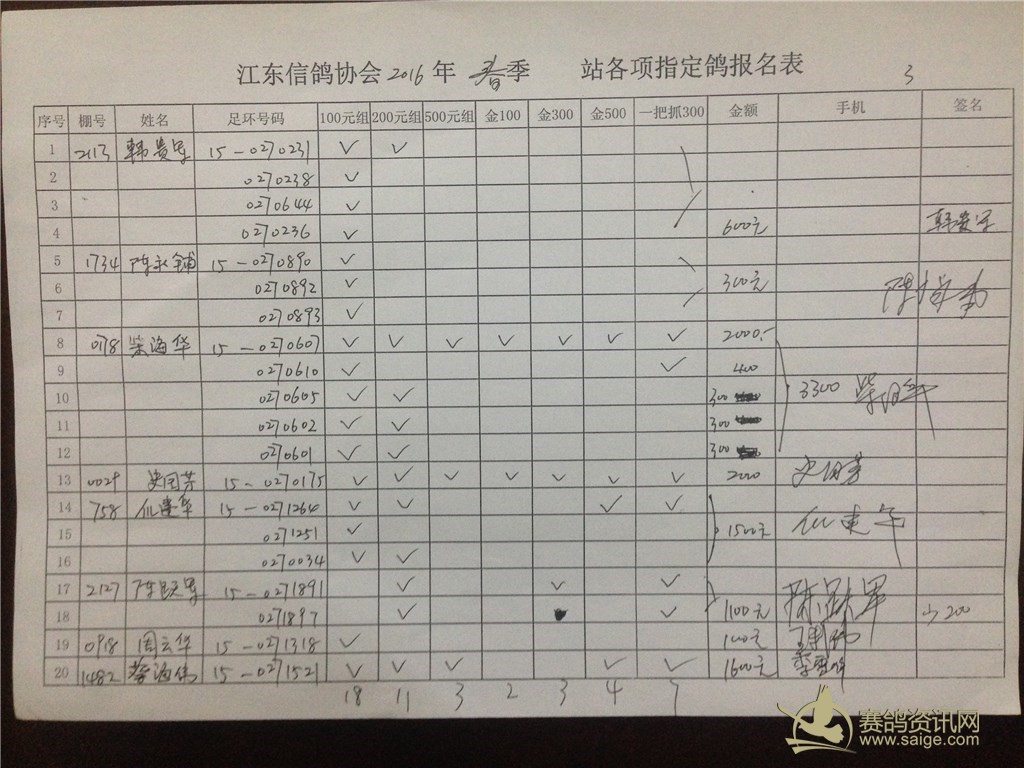 江东信鸽协会2016年 春季 站各项指定鸽报名表 3
序号 棚号 姓名 足环号码 100元组 200元组 500元组 金100 金300 金500 一把抓300 金额 手机 签名
1 2113 韩贵军 15-0270231 ✓ ✓
2 0270238 ✓
3 0270644 ✓
4 0270236 ✓ 600元 韩贵军
5 1734 陈永铺 15-0270890 ✓
6 0270892 ✓ 300元
7 0270893 ✓
8 0178 柴海华 15-0270607 ✓ ✓ ✓ ✓ ✓ ✓ ✓ 2000.-
9 0270610 ✓ ✓ 400
10 0270605 ✓ ✓ 300 3300
11 0270602 ✓ ✓ 300
12 0270601 ✓ ✓ 300
13 0029 史国芳 15-0270175 ✓ ✓ ✓ ✓ ✓ ✓ ✓ 2000 史国芳
14 758 仇建华 15-0271264 ✓ ✓ ✓ ✓
15 0271251 ✓ 1500元 仇建华
16 0270034 ✓ ✓
17 2127 15-0271891 ✓ ✓ ✓
18 0271897 ✓ ✓ 1100元 200
19 0918 周云华 15-0271318 ✓ 100元
20 1482 15-0271521 ✓ ✓ ✓ ✓ ✓ 1600元
18 11 3 2 3 4 7
赛鸽资讯网
www.saige.com